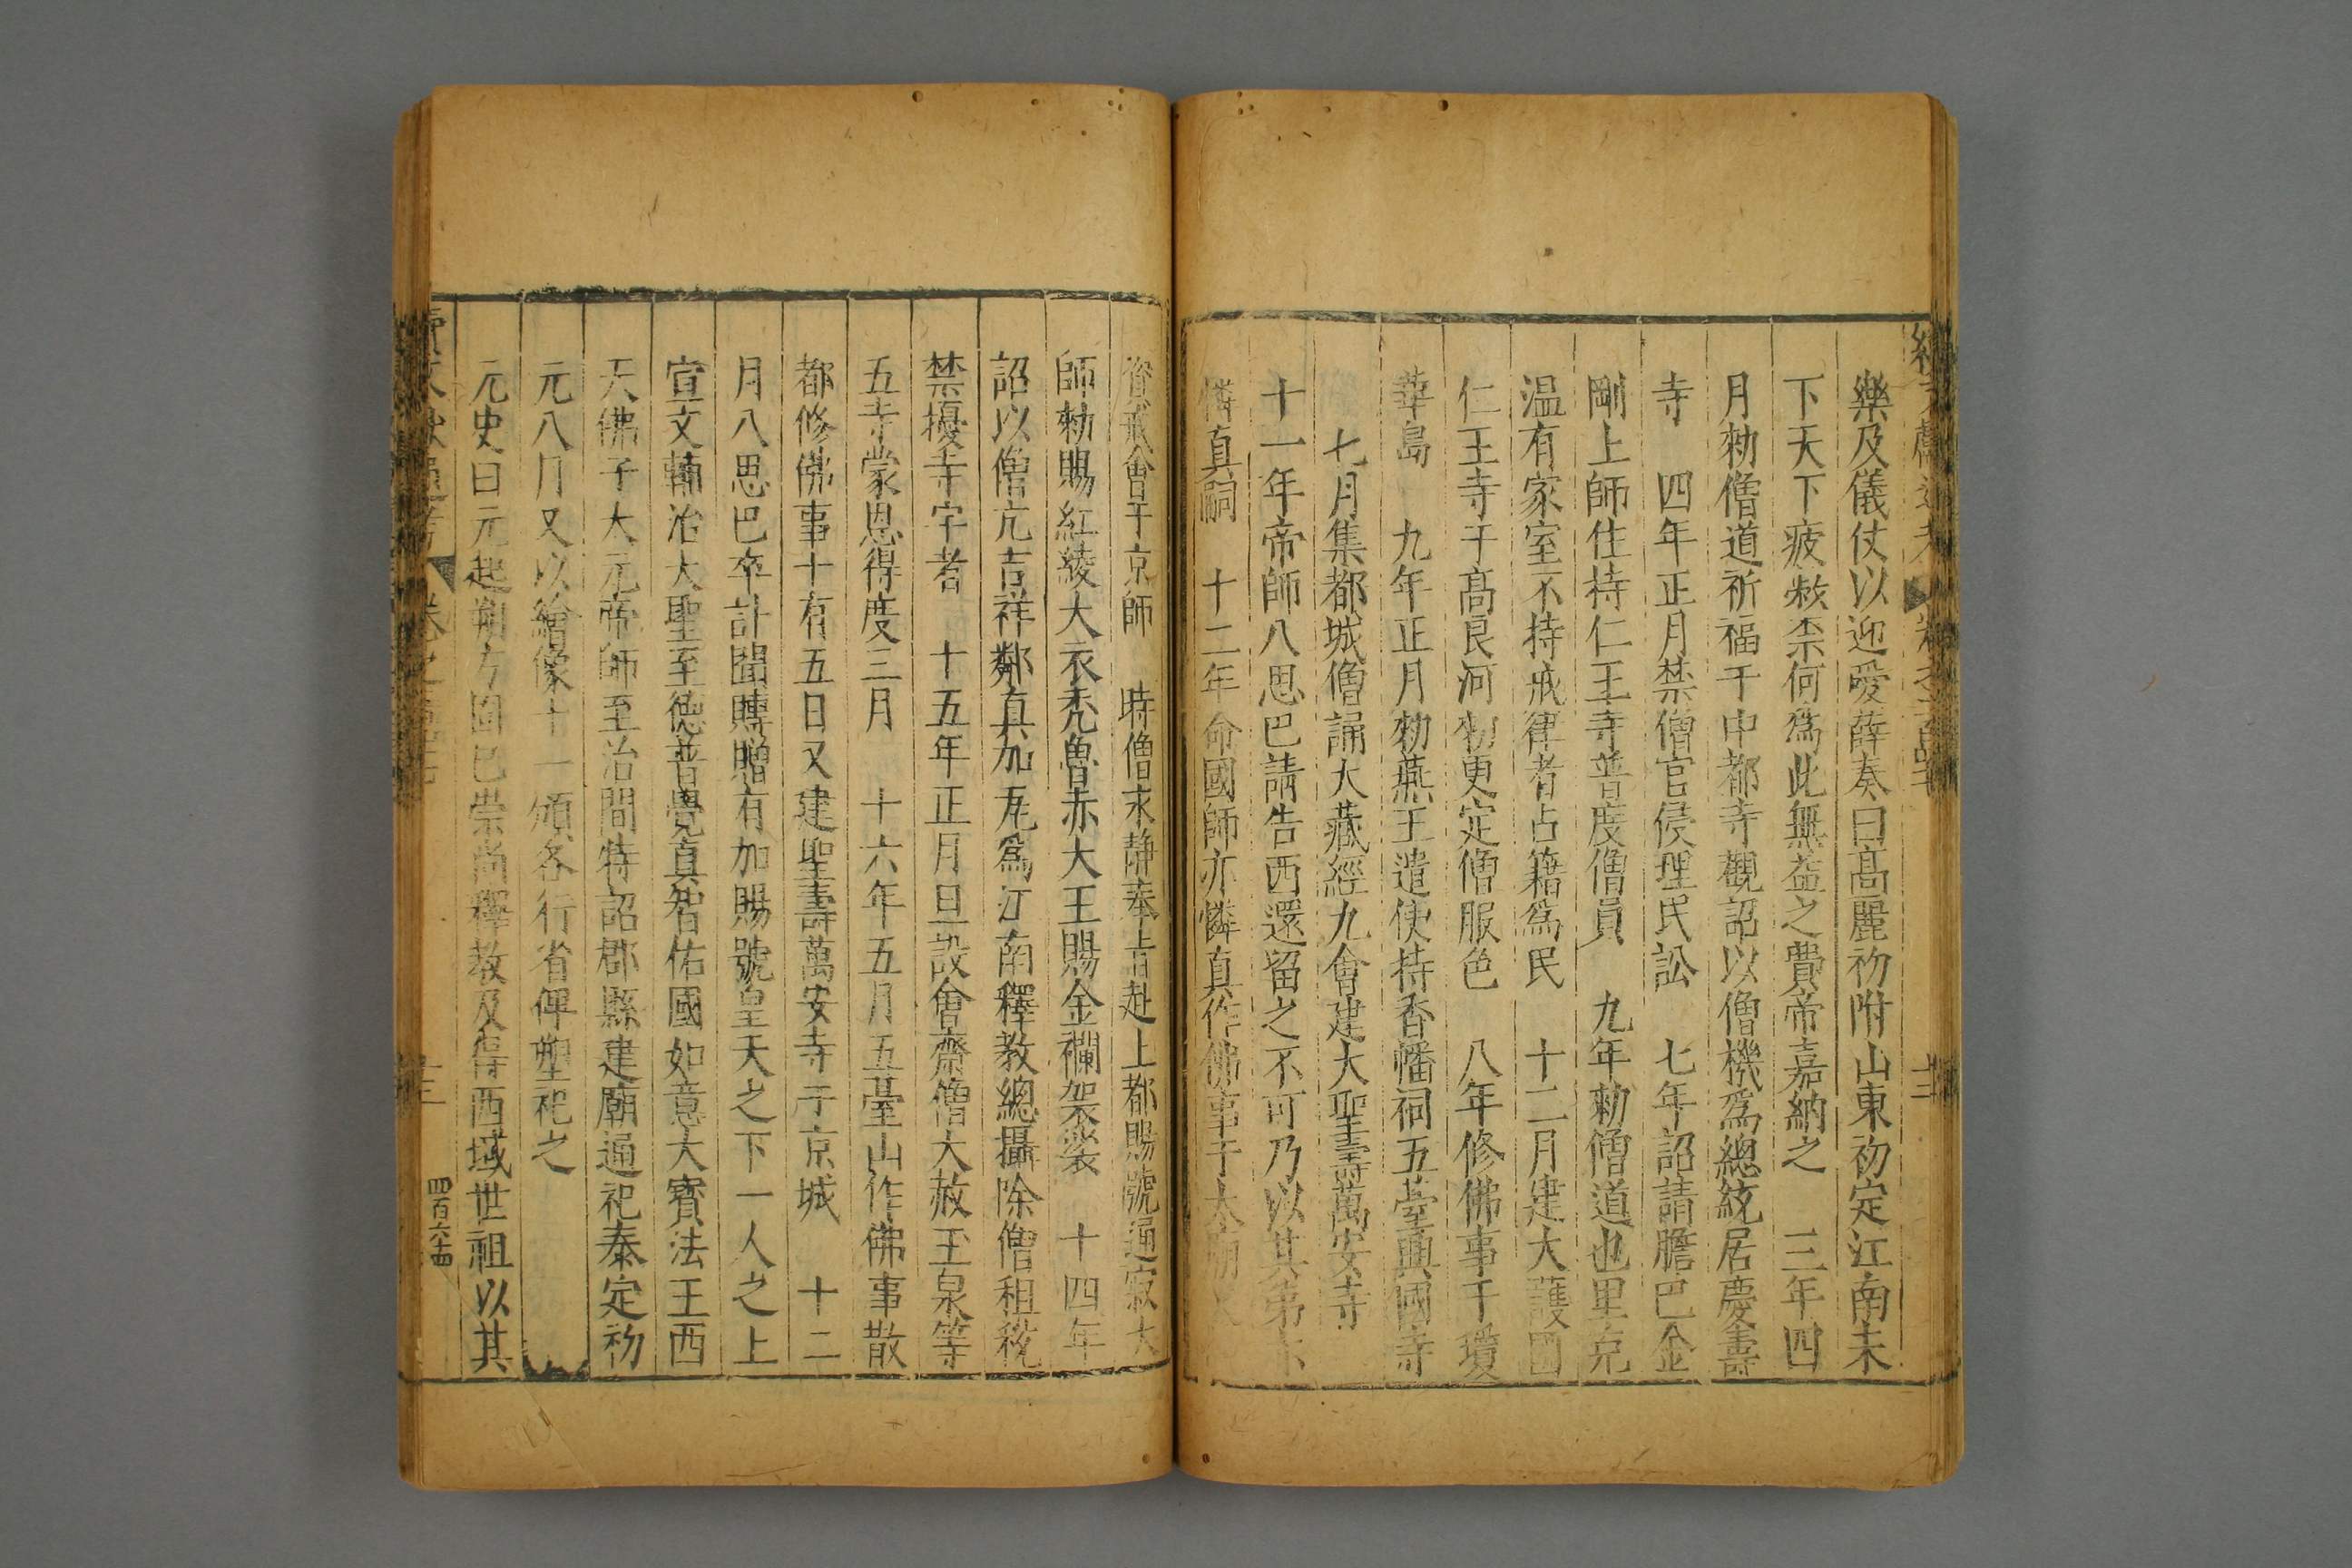 樂及儀仗以迎愛薛奏曰髙麗初附山東初定江南未
下天下疲弊柰何爲此無益之費帝嘉納之　三年四
月勑僧道祈福于中都寺觀詔以僧機爲總統居慶壽
寺　四年正月禁僧官侵理民訟　七年詔請膽巴金
剛上師住持仁王寺普度僧員　九年勑僧道也里克
温有家室不持戒律者占籍爲民　十二月建大護國
仁王寺于髙良河勑更定僧服色　八年修佛事于瓊
華島　九年正月勑燕王遣使持香幡祠五臺興國寺
七月集都城僧誦大藏經九會建大聖壽萬安寺
十一年帝師八思巴請告西還留之不可乃以其弟
憐真嗣　十二年命國師亦憐真作佛事于太廟
資戒會于京師　時僧求静奉旨赴上都賜號通寂大
師勑賜紅綾大衣秃魯赤大王賜金襴袈裟　十四年
詔以僧亢吉祥鄰真加瓦爲江南釋教總攝除僧租稅
禁擾寺宇者　十五年正月旦設會齋僧大赦玉泉等
五寺蒙恩得度三月　十六年五月五臺山作佛事散
都修佛事十有五日又建聖壽萬安寺于京城　十二
月八思巴卒訃聞賻贈有加賜號皇天之下一人之上
宣文輔治大聖至德普覺真智佑國如意大寳法王西
天佛子大元帝師至治間特詔郡縣建廟通祀泰定初
元八月又以繪像十一頒各行省俾塑祀之
元史曰元起朔方固已崇尚釋教及得西域世祖以其
四百六十四